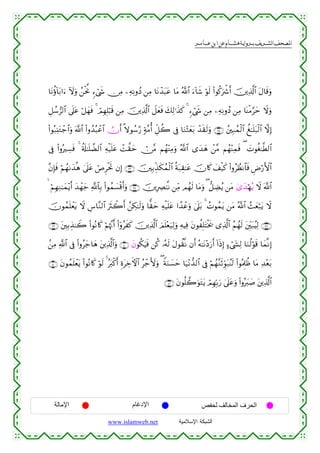 المصحف الشريف برواية هشام عن ابن عامر
وَقَالَ ٱلَّذِينَ أَشۡرَكُواْ لَوۡ شَآءَ ٱللَّهُ مَا عَبَدۡنَا مِن دُونِهِۦ مِن شَيۡءٖ نَّحۡنُ وَلَآ ءَابَآؤُنَا
وَلَا حَرَّمۡنَا مِن دُونِهِۦ مِن شَيۡءٖۚ كَذَٰلِكَ فَعَلَ ٱلَّذِينَ مِن قَبۡلِهِمۡۚ فَهَلۡ عَلَى ٱلرُّسُلِ
إِلَّا ٱلۡبَلَٰغُ ٱلۡمُبِينُ ۝٣٥ وَلَقَدۡ بَعَثۡنَا فِي كُلِّ أُمَّةٖ رَّسُولًا أَنُ ٱعۡبُدُواْ ٱللَّهَ وَٱجۡتَنِبُواْ
ٱلطَّٰغُوتَۖ فَمِنۡهُم مَّنۡ هَدَى ٱللَّهُ وَمِنۡهُم مَّنۡ حَقَّتۡ عَلَيۡهِ ٱلضَّلَٰلَةُۚ فَسِيرُواْ فِي
ٱلۡأَرۡضِ فَٱنظُرُواْ كَيۡفَ كَانَ عَٰقِبَةُ ٱلۡمُكَذِّبِينَ ۝٣٦ إِن تَحۡرِصۡ عَلَىٰ هُدَىٰهُمۡ فَإِنَّ
ٱللَّهَ لَا يُهۡدَىٰ مَن يُضِلُّۖ وَمَا لَهُم مِّن نَّٰصِرِينَ ۝٣٧ وَأَقۡسَمُواْ بِٱللَّهِ جَهۡدَ أَيۡمَٰنِهِمۡ
لَا يَبۡعَثُ ٱللَّهُ مَن يَمُوتُۚ بَلَىٰ وَعۡدًا عَلَيۡهِ حَقّٗا وَلَٰكِنَّ أَكۡثَرَ ٱلنَّاسِ لَا يَعۡلَمُونَ
۝٣٨ لِيُبَيِّنَ لَهُمُ ٱلَّذِي يَخۡتَلِفُونَ فِيهِ وَلِيَعۡلَمَ ٱلَّذِينَ كَفَرُوٓاْ أَنَّهُمۡ كَانُواْ كَٰذِبِينَ ۝٣٩
إِنَّمَا قَوۡلُنَا لِشَيۡءٍ إِذَآ أَرَدۡنَٰهُ أَن نَّقُولَ لَهُۥ كُن فَيَكُونَ ۝٤٠ وَٱلَّذِينَ هَاجَرُواْ فِي ٱللَّهِ مِنۢ
بَعۡدِ مَا ظُلِمُواْ لَنُبَوِّئَنَّهُمۡ فِي ٱلدُّنۡيَا حَسَنَةٗۖ وَلَأَجۡرُ ٱلۡأٓخِرَةِ أَكۡبَرُۚ لَوۡ كَانُواْ يَعۡلَمُونَ ۝٤١
ٱلَّذِينَ صَبَرُواْ وَعَلَىٰ رَبِّهِمۡ يَتَوَكَّلُونَ ۝٤٢
الحرف المخالف لحفص الإدغام الإمالة
الشبكة الإسلامية www.islamweb.net